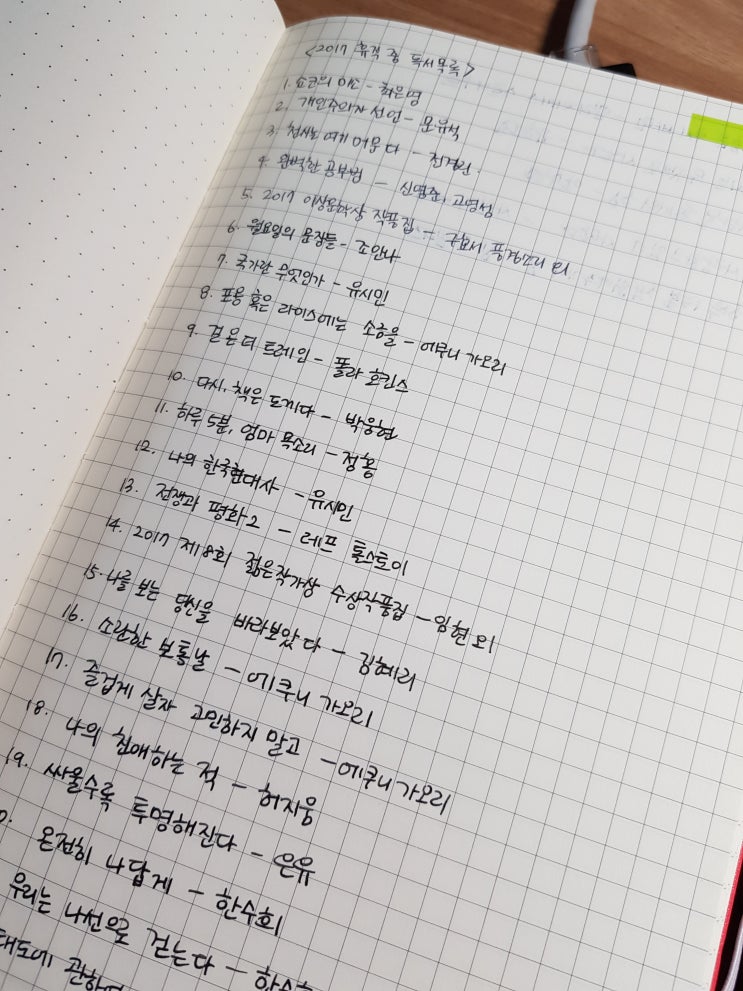 <2017 휴직 중 독서목록>
1. 쇼코의 미소 - 최은영
2. 개인주의자 선언 - 문유석
3. 천사는 여기 머문다 - 전경린.
4. 완벽한 공부법 - 신영준, 고영성
5. 2017 이상문학상 작품집 - 구효서 풍경소리 외
6. 월요일의 문장들 - 조안나
7. 국가란 무엇인가 - 유시민
8. 포옹 혹은 라이스에는 소금을 - 에쿠니 가오리
9. 걸 온 더 트레인 - 폴라 호킨스
10. 다시, 책은 도끼다 - 박웅현
11. 하루 5분, 엄마 목소리 - 정홍
12. 나의 한국현대사 - 유시민
13. 전쟁과 평화 2 - 레프 톨스토이
14. 2017 제18회 젊은작가상 수상작품집 - 임현 외
15. 나를 보는 당신을 바라보았다 - 김혜리
16. 소란한 보통날 - 에쿠니 가오리
17. 즐겁게 살자 고민하지 말고 - 에쿠니 가오리
18. 나의 친애하는 적 - 허지웅
19. 싸울수록 투명해진다 - 은유
0. 온전히 나답게 - 한수희
우리는 나선으로 걷는다 - 한수희
태도에 관하여